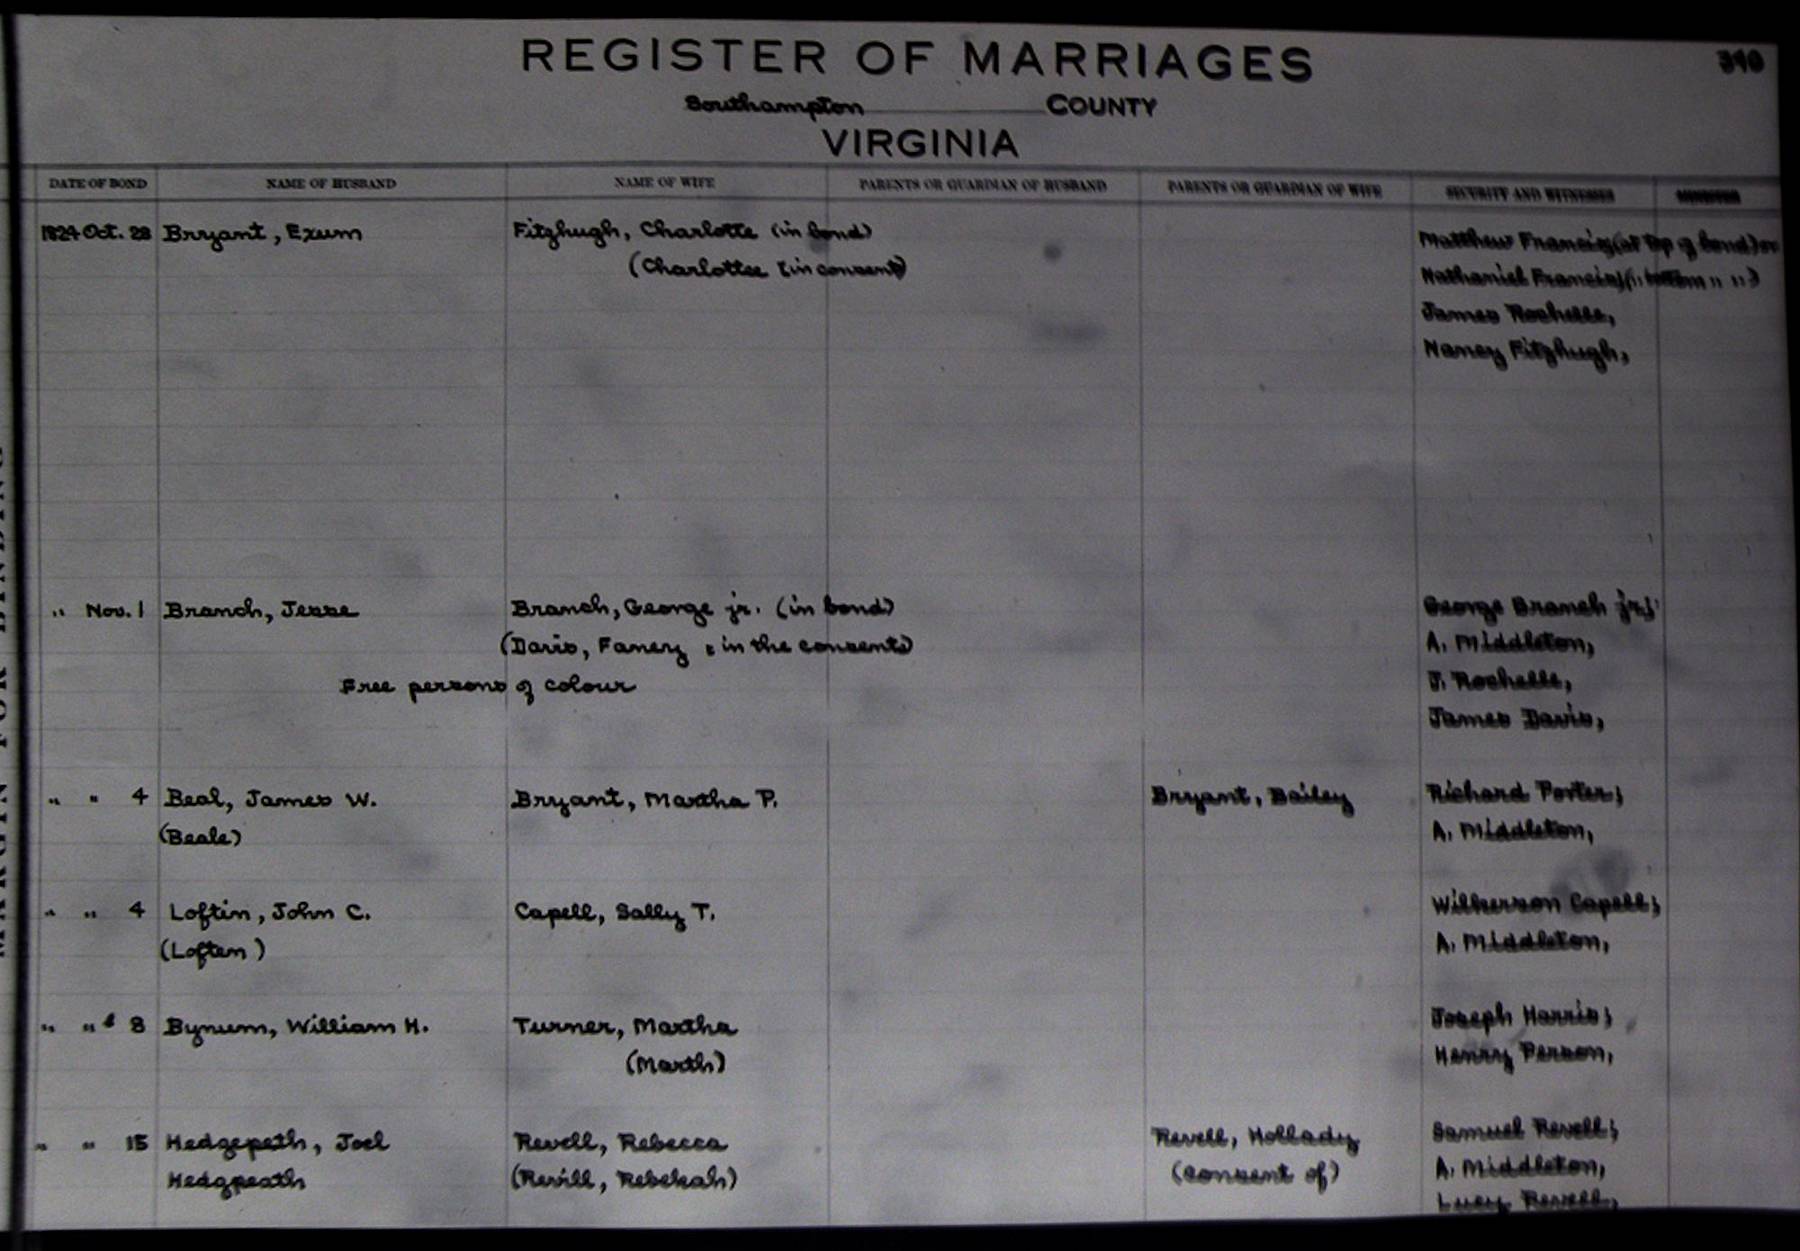 REGISTER OF MARRIAGES
Southampton COUNTY
VIRGINIA
DATE OF BOND NAME OF HUSBAND NAME OF WIFE PARENTS OR GUARDIAN OF HUSBAND PARENTS OR GUARDIAN OF WIFE SECURITY AND WITNESSES MINISTER
1824 Oct. 28 Bryant, Exum Fitzhugh, Charlotte (in bond) Matthew Francis (at top of bond) or
(Charlottee (in consent) Nathaniel Francis (" bottom " ")
James Rochelle,
Nancy Fitzhugh,
" Nov. 1 Branch, Jesse Branch, George jr. (in bond) George Branch jr;
(Davis, Fanery : in the consent) A. Middleton,
Free persons of colour J. Rochelle,
James Davis,
" " 4 Beal, James W. Bryant, Martha P. Bryant, Bailey Richard Porter;
(Beale) A. Middleton,
" " 4 Loftin, John C. Capell, Sally T. Wilkerson Capell;
(Loften) A. Middleton,
" " 8 Bynum, William H. Turner, Martha Joseph Harris;
(Marth) Henry Person,
" " 15 Hedgepeth, Joel Revell, Rebecca Revell, Hollady Samuel Revell;
Hedgpeath (Revill, Rebekah) (consent of) A. Middleton,
Lucy Revell,
MARGIN FOR BINDING